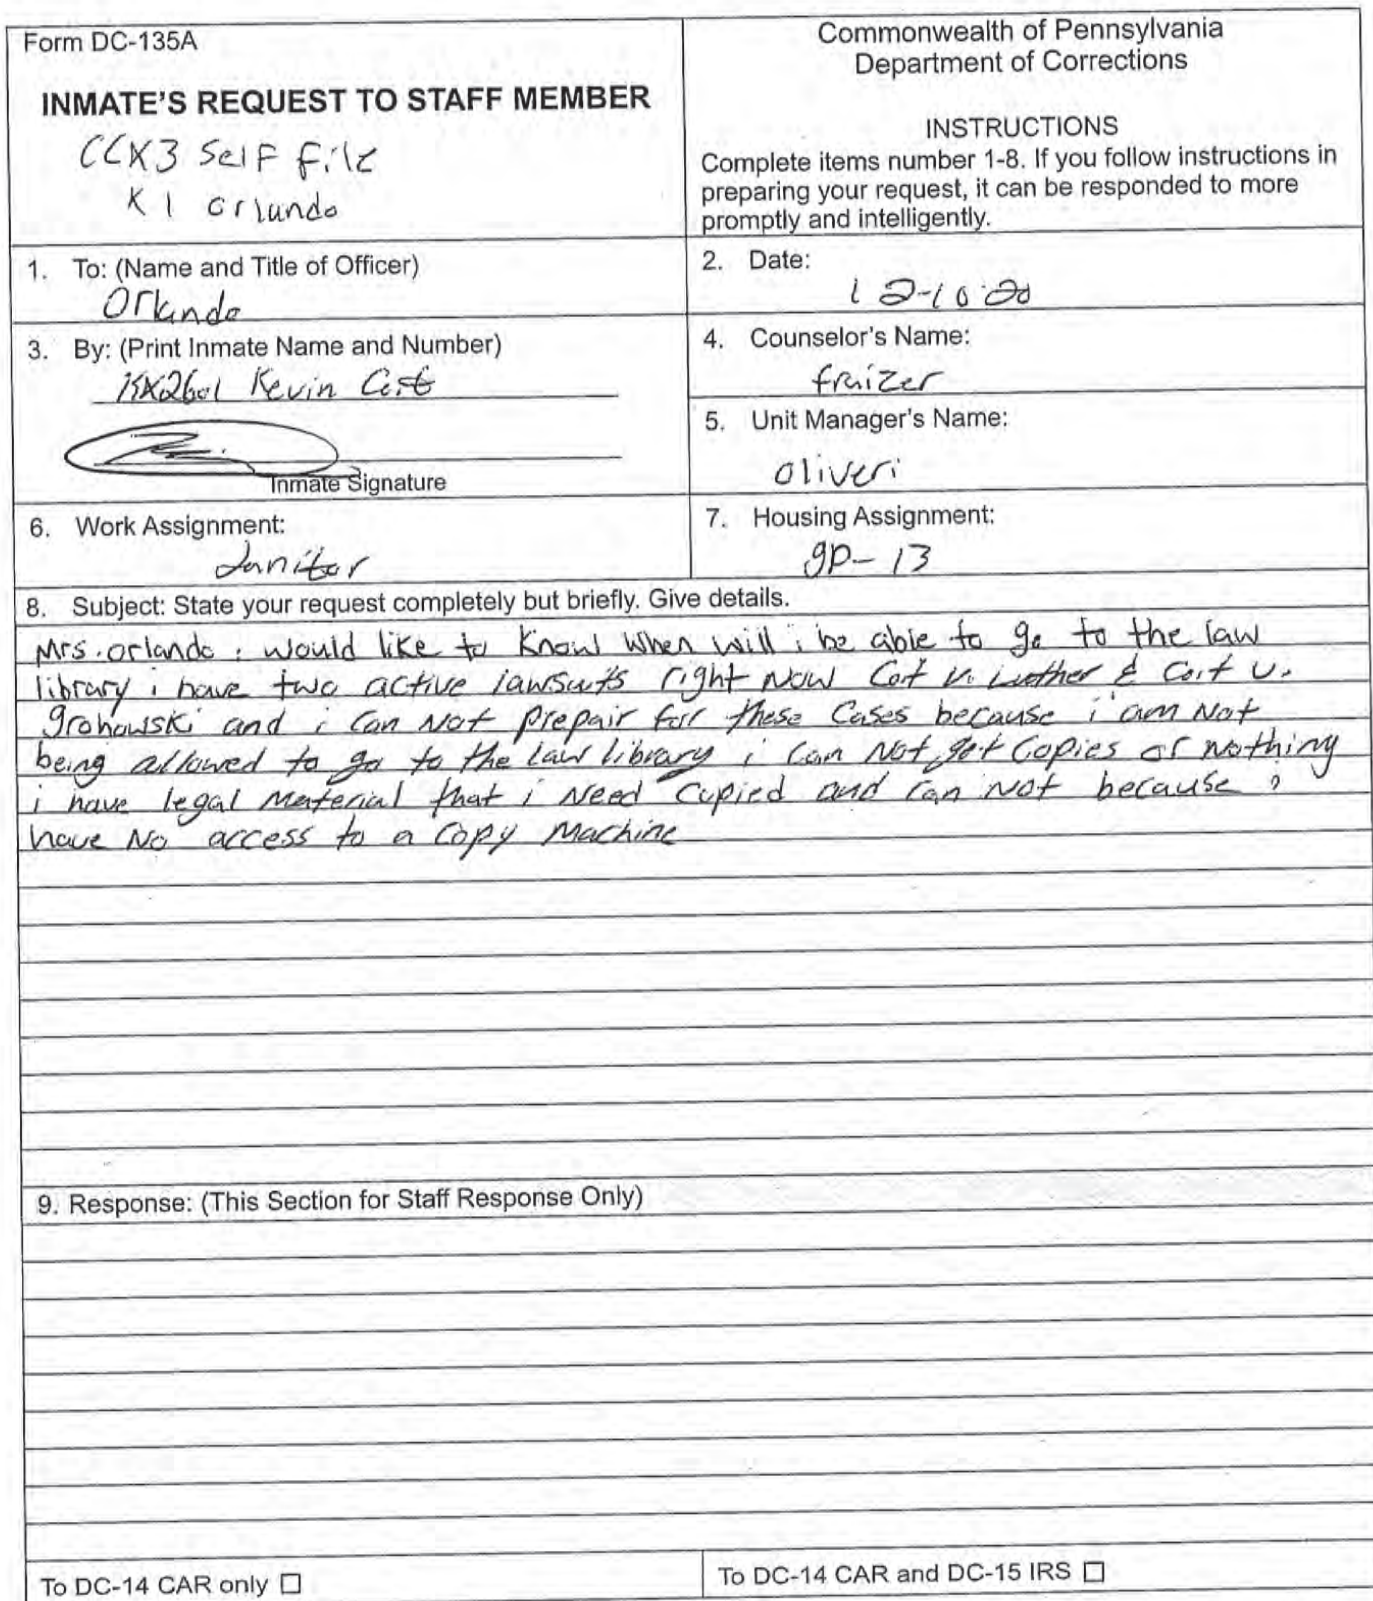 Form DC-135A
INMATE'S REQUEST TO STAFF MEMBER
CCX3 Self File
K1 orlando
Commonwealth of Pennsylvania
Department of Corrections
INSTRUCTIONS
Complete items number 1-8. If you follow instructions in
preparing your request, it can be responded to more
promptly and intelligently.
1. To: (Name and Title of Officer)
Orlando
2. Date:
12-10-20
3. By: (Print Inmate Name and Number)
Kevin
Inmate Signature
4. Counselor's Name:
fraizer
5. Unit Manager's Name:
oliveri
6. Work Assignment:
Janitor
7. Housing Assignment:
gD-13
8. Subject: State your request completely but briefly. Give details.
Mrs. orlando i would like to Know when will i be able to go to the law
library i have two active lawsuits right Now Cort v. Luther & Cort v.
grohowski and i can Not prepair for these Cases because i am Not
being allowed to go to the law library i can Not get Copies or Nothing
i have legal Material that i Need Copied and can Not because i
have No access to a Copy Machine
9. Response: (This Section for Staff Response Only)
To DC-14 CAR only ☐
To DC-14 CAR and DC-15 IRS ☐